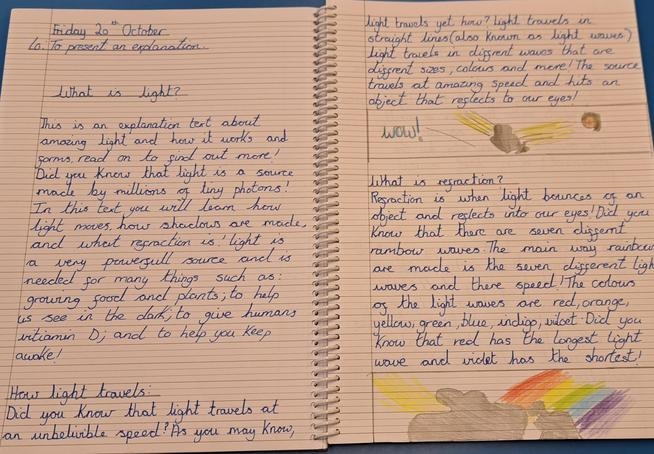 Friday 20th October
Lo. To present an explanation.
What is light?
This is an explanation text about
amazing light and how it works and
forms, read on to find out more!
Did you know that light is a source
made by millions of tiny photons!
In this text you will learn how
light moves, how shadows are made,
and what refraction is! light is
a very powerfull source and is
needed for many things such as:
growing food and plants; to help
us see in the dark; to give humans
vitiamin D; and to help you keep
awake!
How light travels:
Did you know that light travels at
an unbelivible speed? As you may know,
light travels yet how? light travels in
straight lines (also known as light waves)
light travels in diffrent waves that are
diffrent sizes, colours and more! The source
travels at amazing speed and hits an
object that reflects to our eyes!
wow!
What is refraction?
Refraction is when light bounces of an
object and reflects into our eyes! Did you
know that there are seven differnt
rainbow waves. The main way rainbows
are made is the seven different ligh
waves and there speed! The colours
of the light waves are red, orange,
yellow, green, blue, indigo, vilcet. Did you
know that red has the longest light
wave and violet has the shortest!